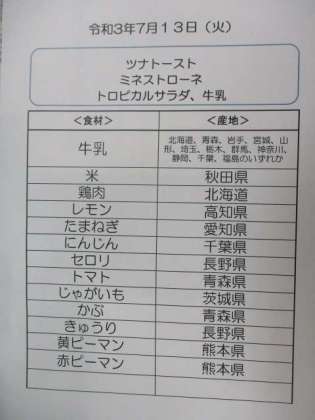 令和3年7月13日（火）
ツナトースト
ミネストローネ
トロピカルサラダ、牛乳
＜食材＞ ＜産地＞
牛乳 北海道、青森、岩手、宮城、山
形、埼玉、栃木、群馬、神奈川、
静岡、千葉、福島のいずれか
米 秋田県
鶏肉 北海道
レモン 高知県
たまねぎ 愛知県
にんじん 千葉県
セロリ 長野県
トマト 青森県
じゃがいも 茨城県
かぶ 青森県
きゅうり 長野県
黄ピーマン 熊本県
赤ピーマン 熊本県